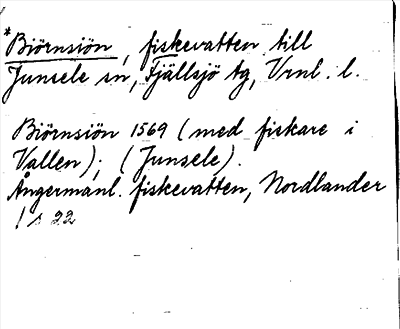 *Biörnsiön, fiskevatten till
Junsele sn, Fjällsjö tg, Vrnl. l.
Biörnsiön 1569 (med fiskare i
Vallen); (Junsele).
Ångermanl. fiskevatten, Nordlander
1 s 22